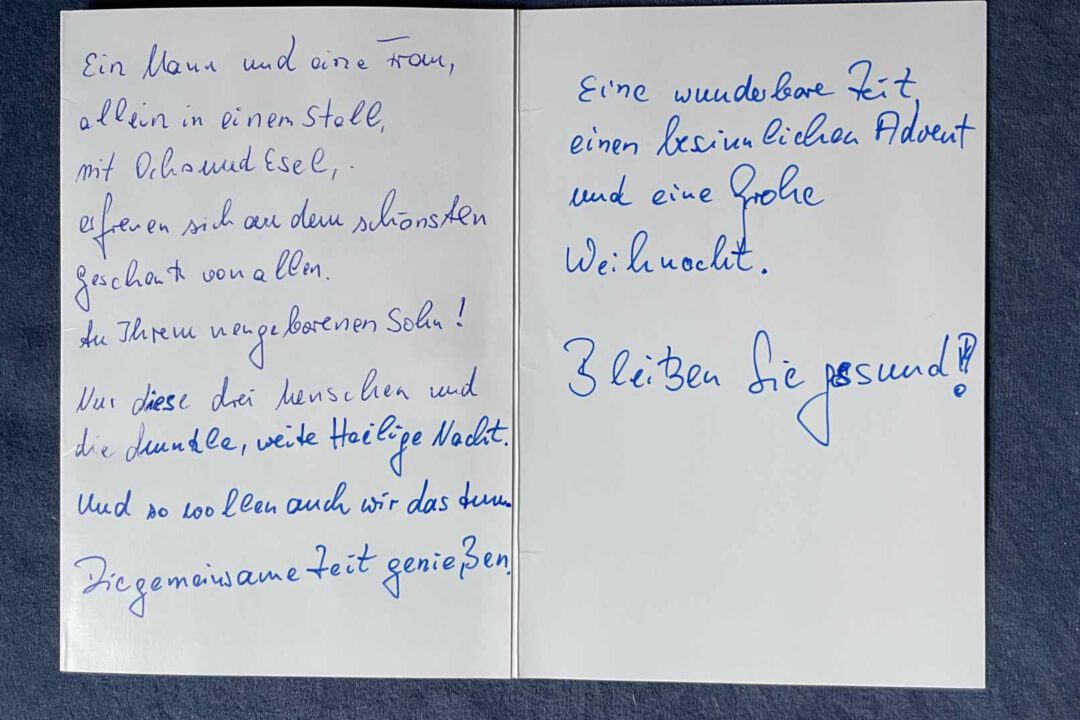 Ein Mann und eine Frau,
allein in einem Stall,
mit Ochs und Esel,
erfreuen sich an dem schönsten
Geschenk von allen.
An Ihrem neugeborenen Sohn!
Nur diese drei Menschen und
die dunkle, weite Heilige Nacht.
Und so wollen auch wir das tun.
Die gemeinsame Zeit genießen.
Eine wunderbare Zeit,
einen besinnlichen Advent
und eine Frohe
Weihnacht.
Bleiben Sie gesund!